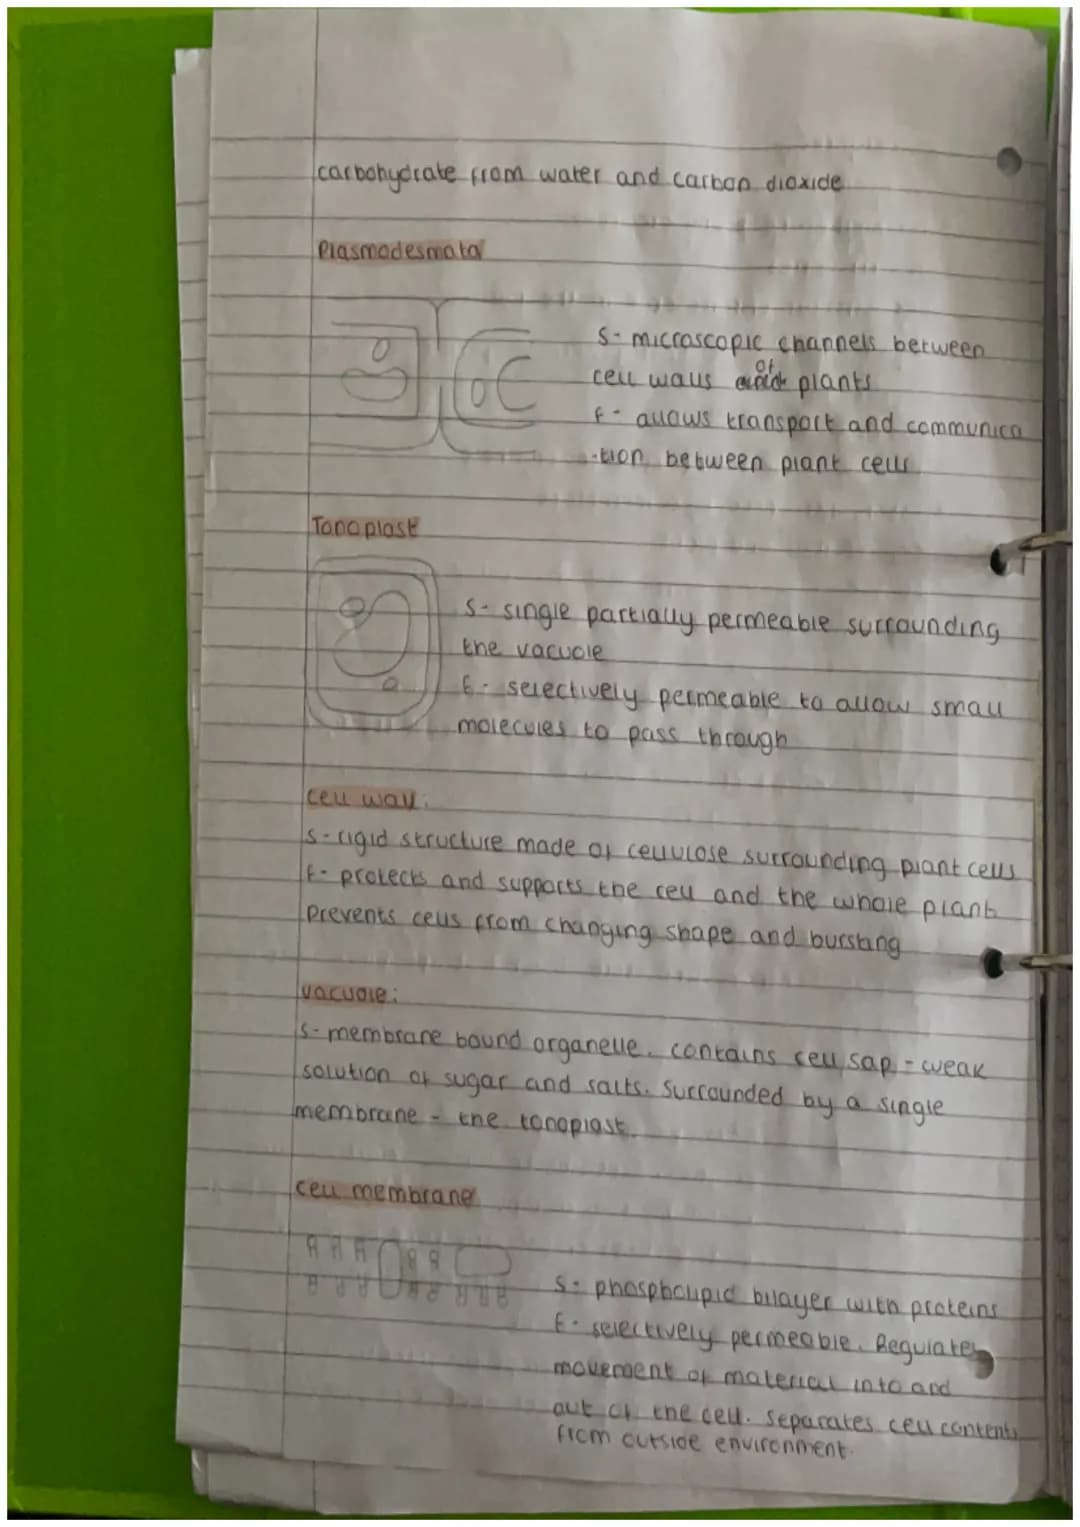 carbohydrate from water and carbon dioxide
Plasmodesmata
S- microscopic channels between
cell walls of plants
F- allows transport and communica
-tion between plant cells
Tonoplast
S- single partially permeable surrounding
the vacuole
F- selectively permeable to allow small
molecules to pass through
cell wall:
S- rigid structure made of cellulose surrounding plant cells
F- protects and supports the cell and the whole plant
prevents cells from changing shape and bursting
vacuole:
S- membrane bound organelle. contains cell sap - weak
solution of sugar and salts. Surrounded by a single
membrane - the tonoplast.
cell membrane
S- phospholipid bilayer with proteins
F- selectively permeable. Regulates
movement of material into and
out of the cell. Separates cell contents
from outside environment.